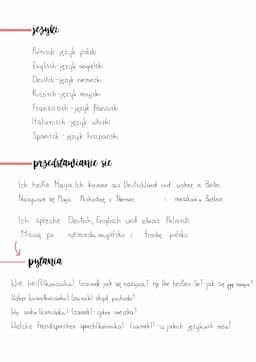 języki
Polnisch - język polski
Englisch - język angielski
Deutsch - język niemiecki
Russisch - język rosyjski
Französisch - język francuski
Italienisch - język włoski
Spanisch - język hiszpański
przedstawianie sie
Ich heiße Maya Ich komme aus Deutschland und wohne in Berlin
Nazywam się Maja Pochodzę z Niemiec i mieszkam w Berlinie
Ich spreche Deutsch, Englisch und etwas Polnisch
Mówię po niemiecku, angielsku i trochę polsku
pytania
Wie heißt (końcówka) (zaimek) jak się nazywa? np Wie heißen Sie? jak się nazywa?
Woher kommt (końcówka) (zaimek) - skąd pochodzi?
Wo wohnt (końcówka) (zaimek) - gdzie mieszka?
Welche Fremdsprachen sprech (końcówka) (zaimek)? - w jakich językach mówi?